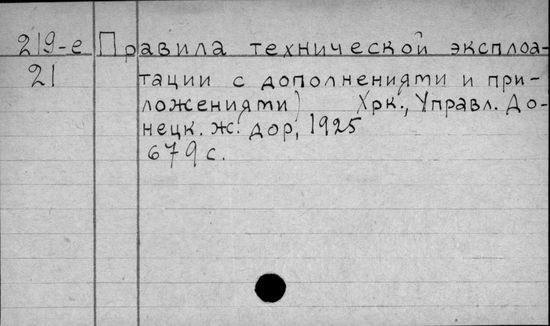 219-е Правила технической эксплоа-
21 тации с дополнениями и при-
ложениями) Хрк., Управл. До-
нецк. ж. дор, 1925
679 с.